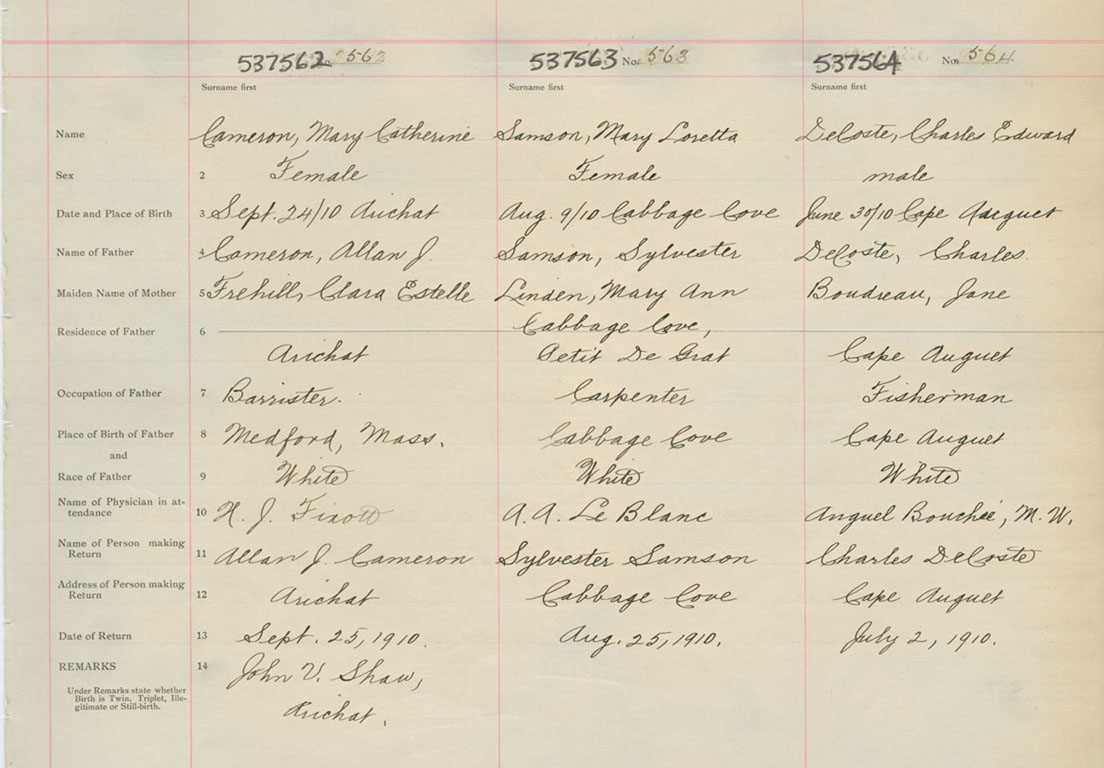 537562 562 537563 No. 563 537564 No. 564
Surname first Surname first Surname first
Name Cameron, Mary Catherine Samson, Mary Loretta DeCoste, Charles Edward
Sex 2 Female Female male
Date and Place of Birth 3 Sept. 24/10 Arichat Aug. 9/10 Cabbage Cove June 30/10 Cape Auguet
Name of Father 4 Cameron, Allan J. Samson, Sylvester DeCoste, Charles.
Maiden Name of Mother 5 Frehill, Clara Estelle Linden, Mary Ann Boudreau, Jane
Cabbage Cove,
Residence of Father 6
Arichat Petit De Grat Cape Auguet
Occupation of Father 7 Barrister. Carpenter Fisherman
Place of Birth of Father 8 Medford, Mass. Cabbage Cove Cape Auguet
and
Race of Father 9 White White White
Name of Physician in at-
tendance 10 H. J. Fixott A. A. Le Blanc Anguel Bouchie, M. W.
Name of Person making
Return 11 Allan J. Cameron Sylvester Samson Charles DeCoste
Address of Person making
Return 12 Arichat Cabbage Cove Cape Auguet
Date of Return 13 Sept. 25, 1910. Aug. 25, 1910. July 2, 1910.
REMARKS 14 John V. Shaw,
Under Remarks state whether
Birth is Twin, Triplet, Ille-
gitimate or Still-birth.
Arichat.